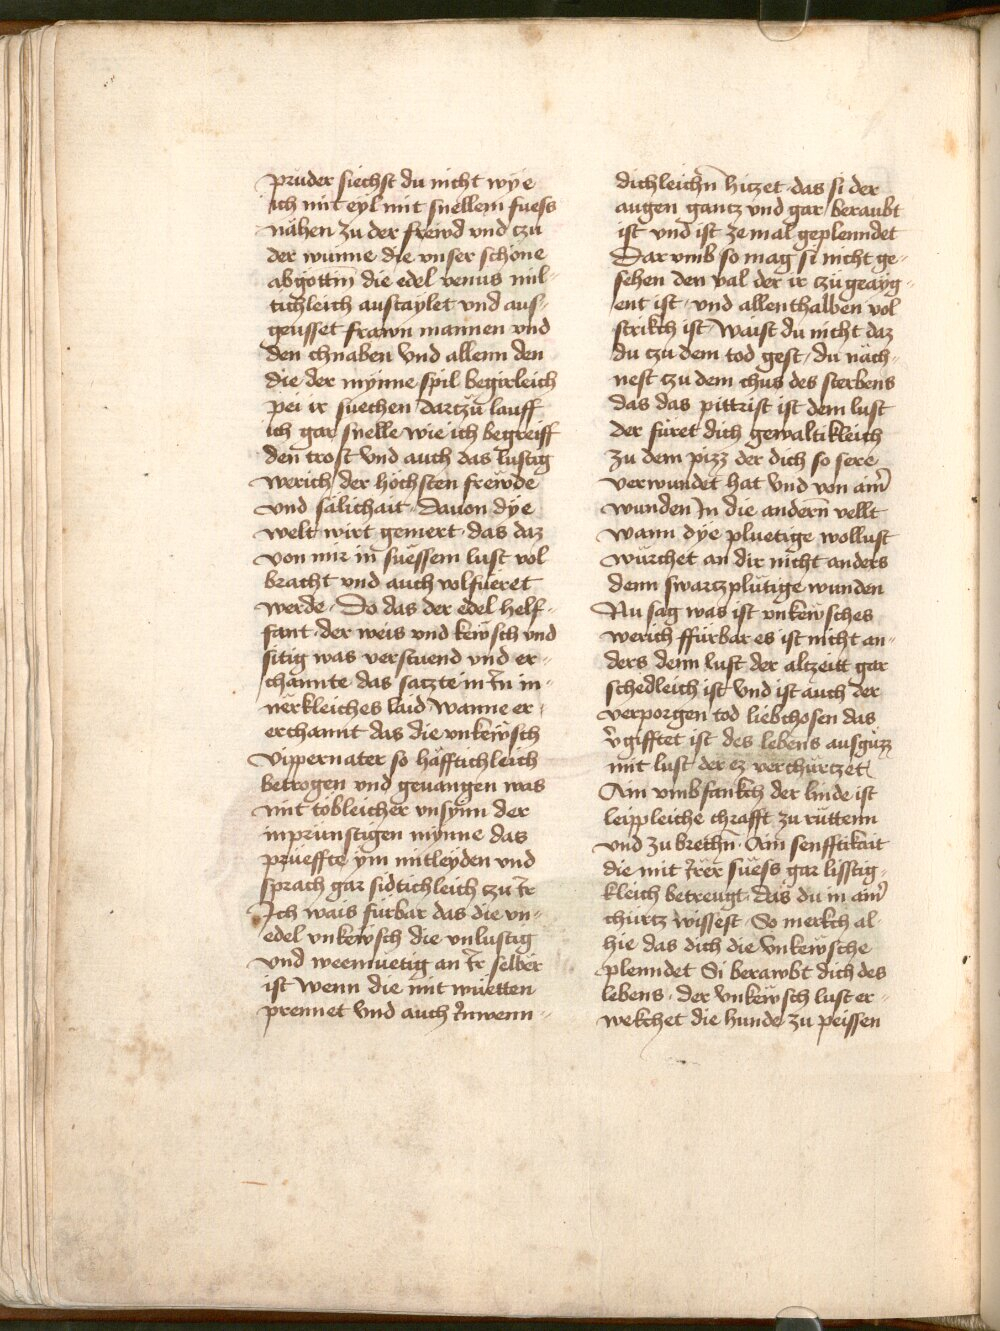 pruder siechst du nicht wye
ich mit eyl mit snellem fuess
nähen zu der frewd vnd czu
der wunne die vnser schöne
abgöttin̄ die edel venus mil-
tichleich austaylet vnd aus-
geusset frawn mannen vnd
den chnaben Vnd allenn den
die der mynne spil begirleich
pei ir suechen Darczü lauff
ich gar snelle wie ich begreiff
den trost Vnd auch das lustig
werich der höchsten frewde
vnd sälichait · Dauon dye
welt wirt gemert · das daz
von mir in suessem lust vol
bracht vnd auch volfueret
werde · Do das der edel helf-
fant · der weis vnd kewsch vnd
sitig was verstuend vnd er-
channte das saczte in ein in-
nerkleiches laid Wanne er-
erchannt das die vnkewsch
Vippernater so häfftichleich
betrogen vnd geuangen was
mit tobleicher vnsynn der
inprunstigen mynne das
prüeffte ym mitleyden vnd
sprach gar sidtichleich czu ir
Ich wais fürbar das die vn-
edel vnkewsch die vnlustig
vnd weemuetig an ir selber
ist Wenn die mit wüetten
prennet vnd auch inwenn-
dichleichn̄ hiczet · das si der
augen gantz vnd gar beraubt
ist vnd ist ze mal geplenndet
Dar vmb so mag si nicht ge-
sehen den val der ir czü geayg-
ent ist · vnd allenthalben vol
strikch ist Waist du nicht daz
du czu dem tod gest · du näch-
nest czu dem chus des sterbens
das das pittrist ist dem lust
der füret dich gewaltikleich
zu dem pizz der dich so sere
verwundet hat Vnd von aim̄
wunden In die andern̄ vellt
wann dye pluetige wollust
würchet an dir nicht anders
denn swartzplütige wunden
Nu sag was ist vnkewsches
werich ffürbar es ist nicht an-
ders denn lust der altzeitt gar
schedleich ist Vnd ist auch der
verporgen tod liebchosen das
v̄gifftet ist des lebens ausgüzz
mit lust der ez verchürtzet
Ain vmbfankch der linde ist
leippleiche chrafft zu rüttenn
vnd zu brechn̄ · Ain senfftikait
die mit irer suess gar lisstig-
kleich betreugt · das du in aim̄
chürtz wissest · So merkch al-
hie das dich die Vnkewsche
plenndet Si berawbt dich des
lebens · der Vnkewsch lust er-
wekchet die hunde zu peissen